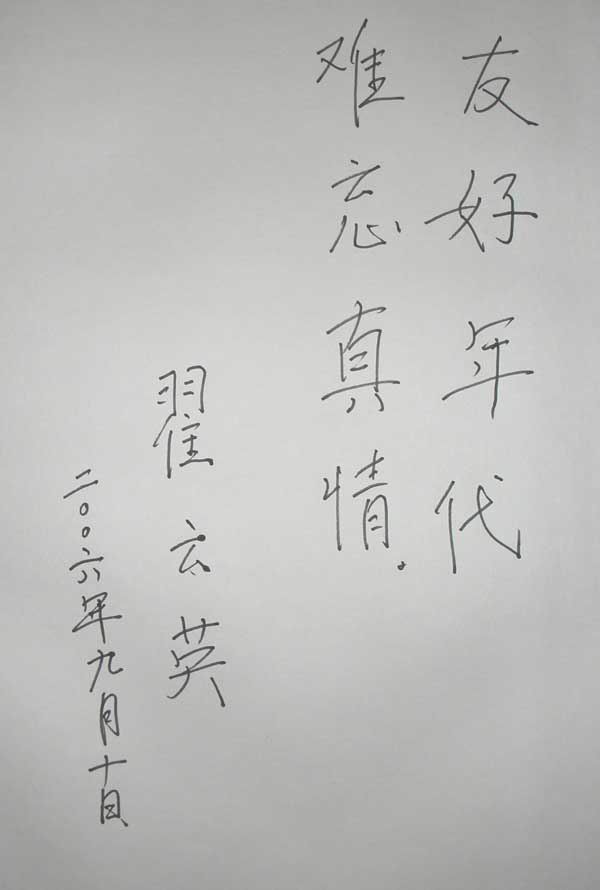 友好年代
难忘真情.
翟云英
二〇〇六年九月十日